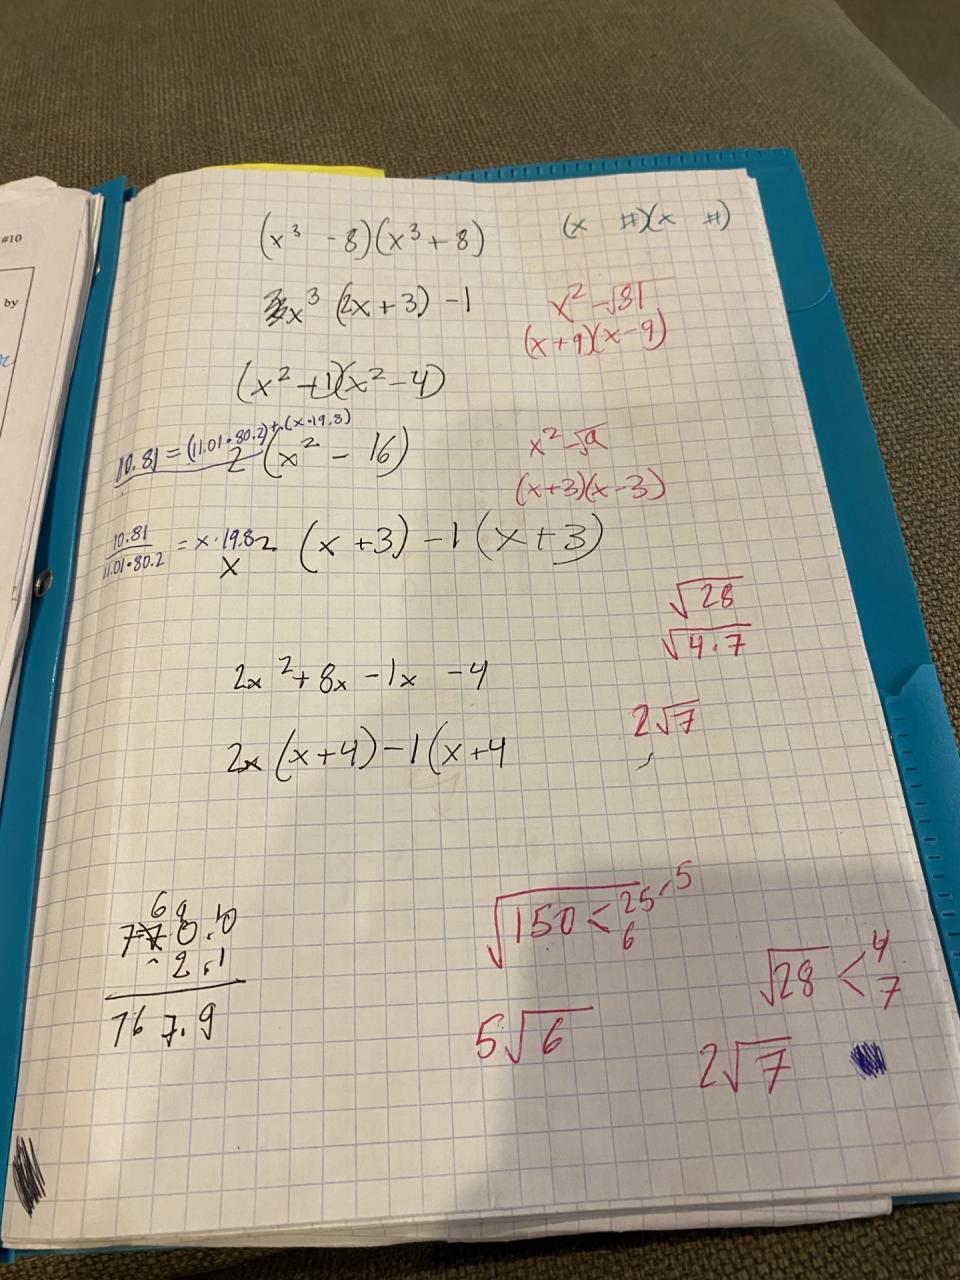 #10
by
(x³ - 8)(x³ + 8)
(x #)(x #)
x³ (2x + 3) - 1
x² - √81
(x + 9)(x - 9)
(x² + 1)(x² - 4)
10.81 = (11.01 • 80.2) + (x • 19.8)
2 (x² - 16)
x² - √9
(x + 3)(x - 3)
10.81 / 11.01 • 80.2 = x • 19.8
2x (x + 3) - 1 (x + 3)
√28
√4 • 7
2√7
2x² + 8x - 1x - 4
2x (x + 4) - 1 (x + 4
6 9 10
770.0
- 2.1
767.9
√150 < 25 < 5
6
5√6
√28 < 4
7
2√7